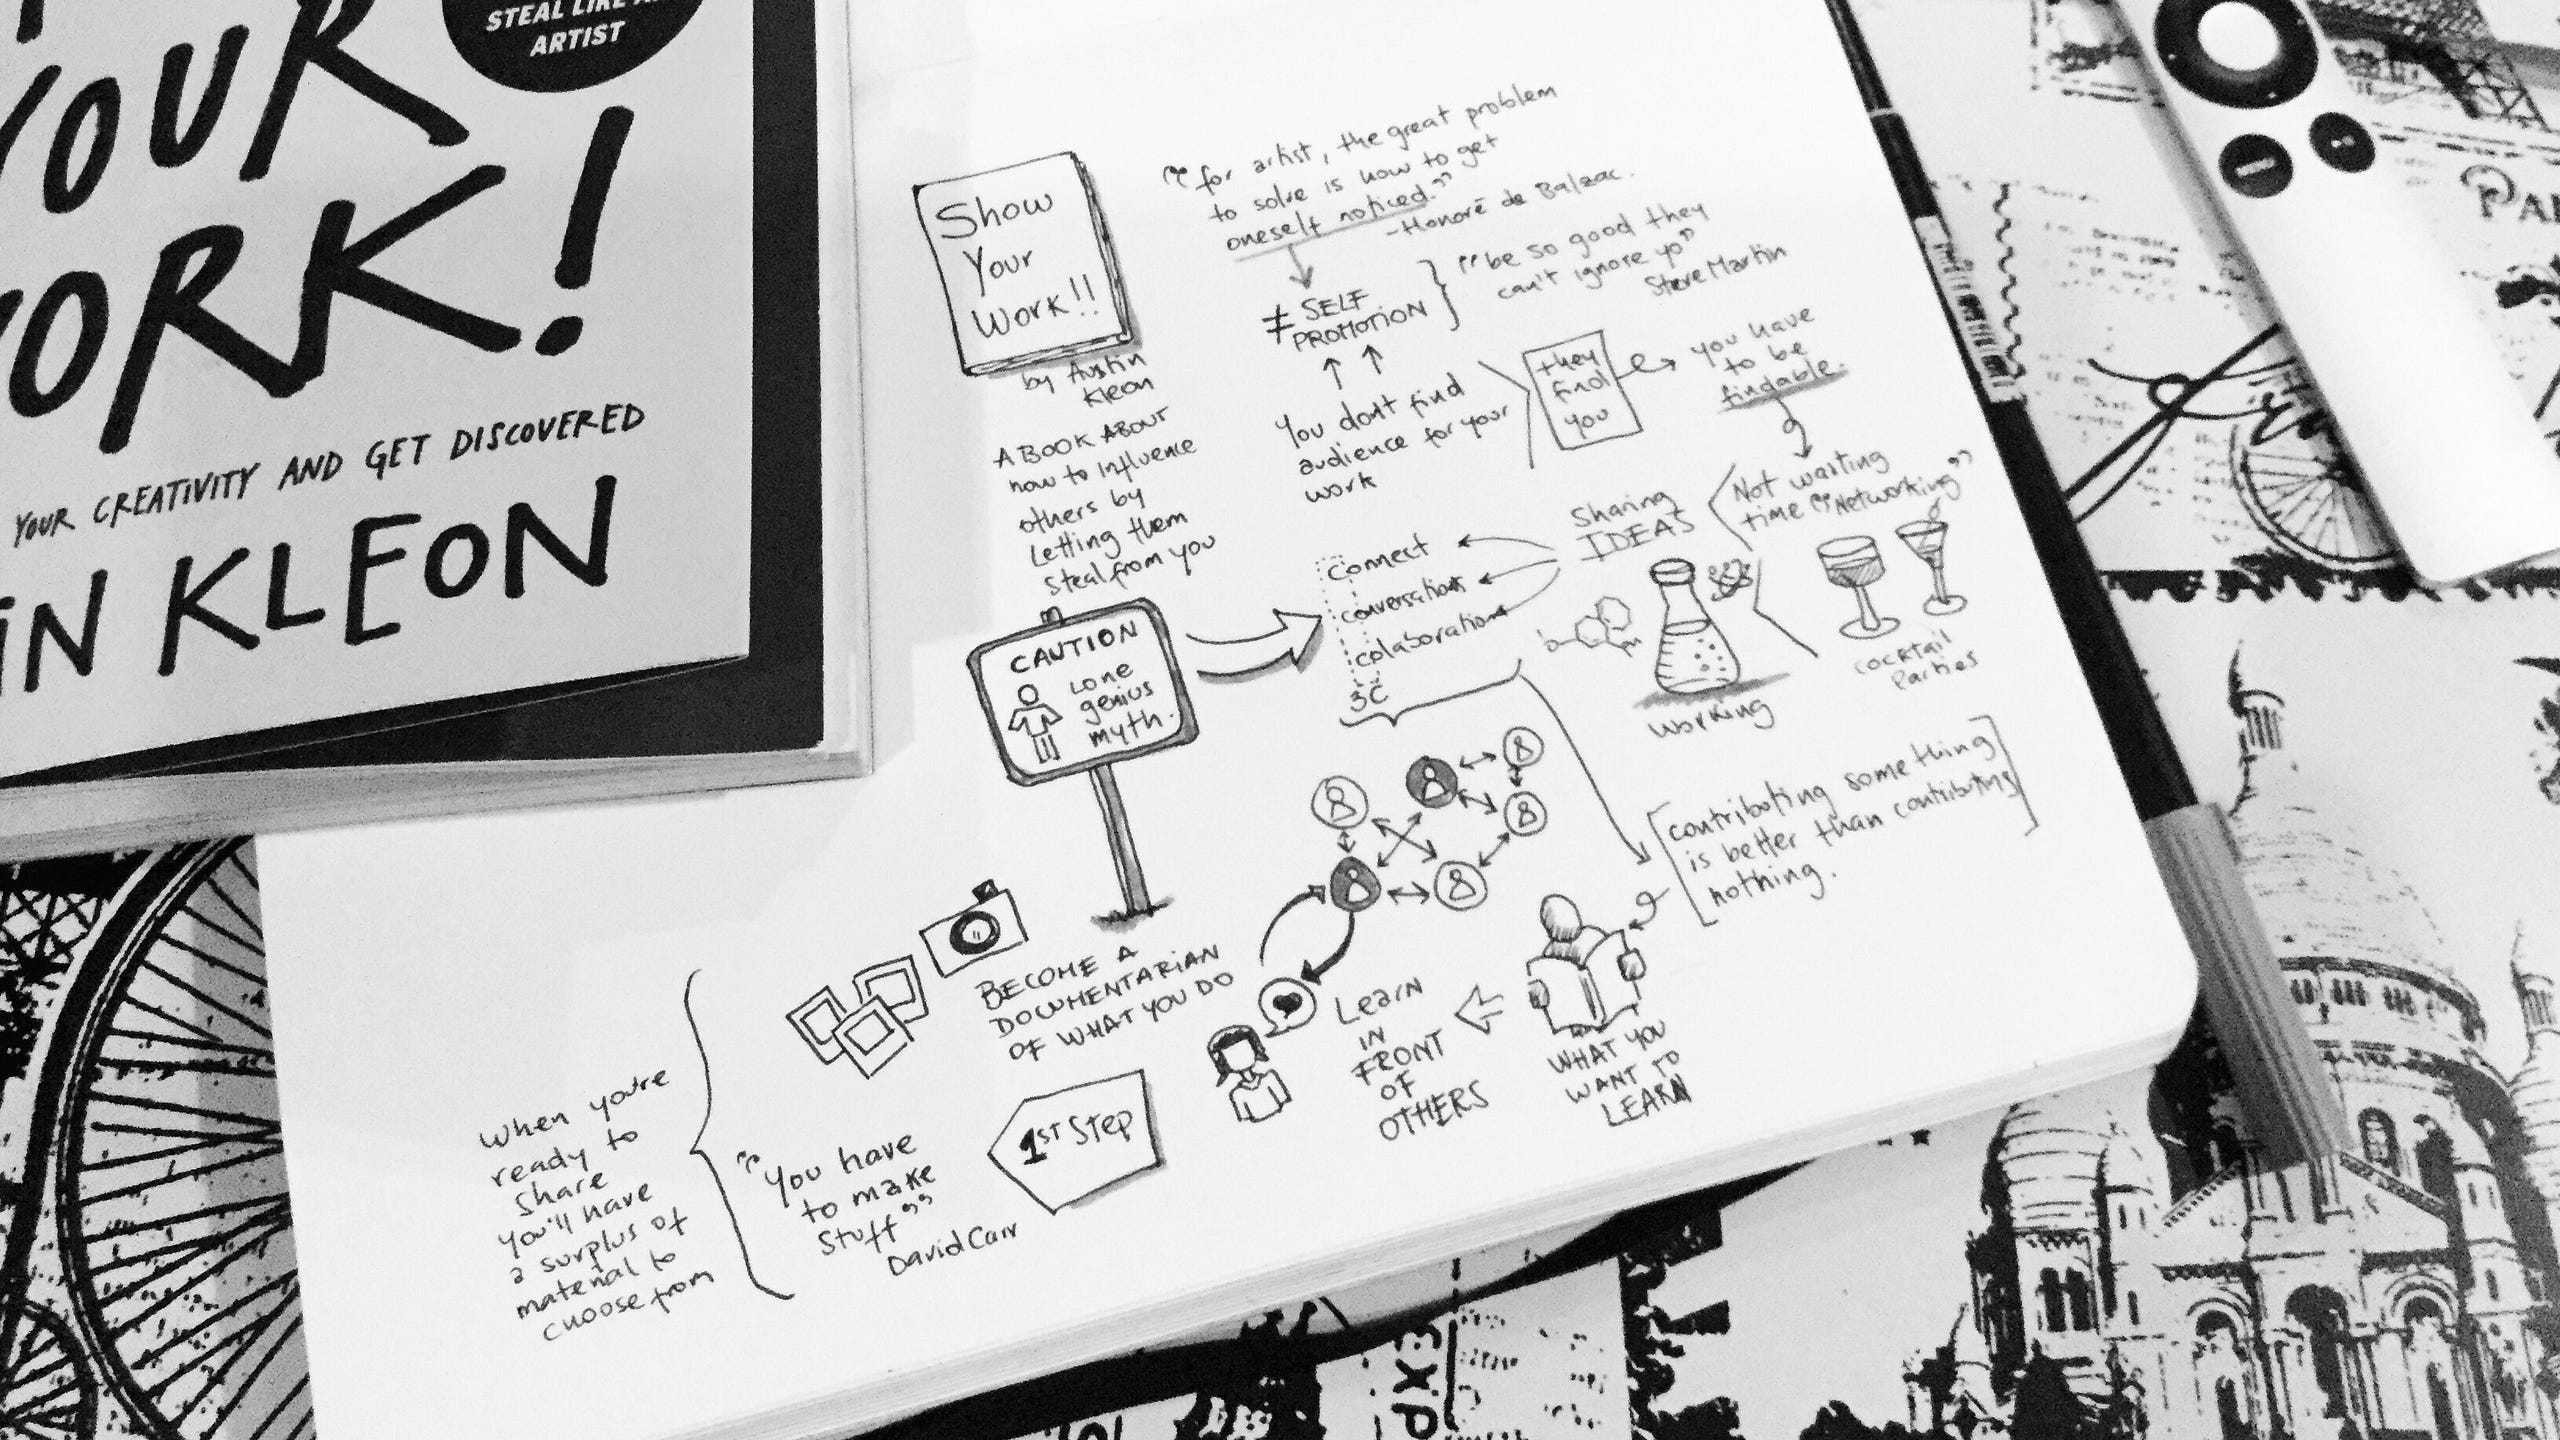 STEAL LIKE AN
ARTIST
YOUR
WORK!
YOUR CREATIVITY AND GET DISCOVERED
IN KLEON
Show
Your
Work!!
by Austin
Kleon
A BOOK ABOUT
how to influence
others by
Letting them
steal from you
"for artist, the great problem
to solve is how to get
oneself noticed."
-Honoré de Balzac.
≠ SELF
PROMOTION
"be so good they
can't ignore yo"
Steve Martin
You dont find
audience for your
work
they
find
you
you have
to be
findable.
Not wasting
time "Networking"
cocktail
Parties
Sharing
IDEAS
working
connect
conversations
colaborations
3C
CAUTION
Lone
genius
myth.
[contributing something
is better than contributing
nothing.]
WHAT YOU
WANT TO
LEARN
Learn
IN
FRONT
OF
OTHERS
BECOME A
DOCUMENTARIAN
OF WHAT YOU DO
1ST STEP
"You have
to make
Stuff"
David Carr
When you're
ready to
share
you'll have
a surplus of
material to
choose from